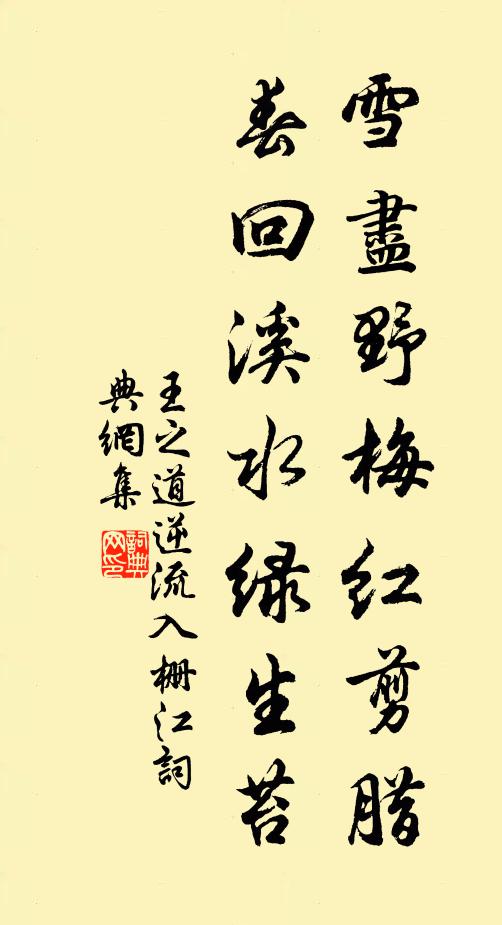 雪盡野梅紅剪腊
春回溪水绿生苔
王之道逆流入栅江詞
典網集
詞典
网印